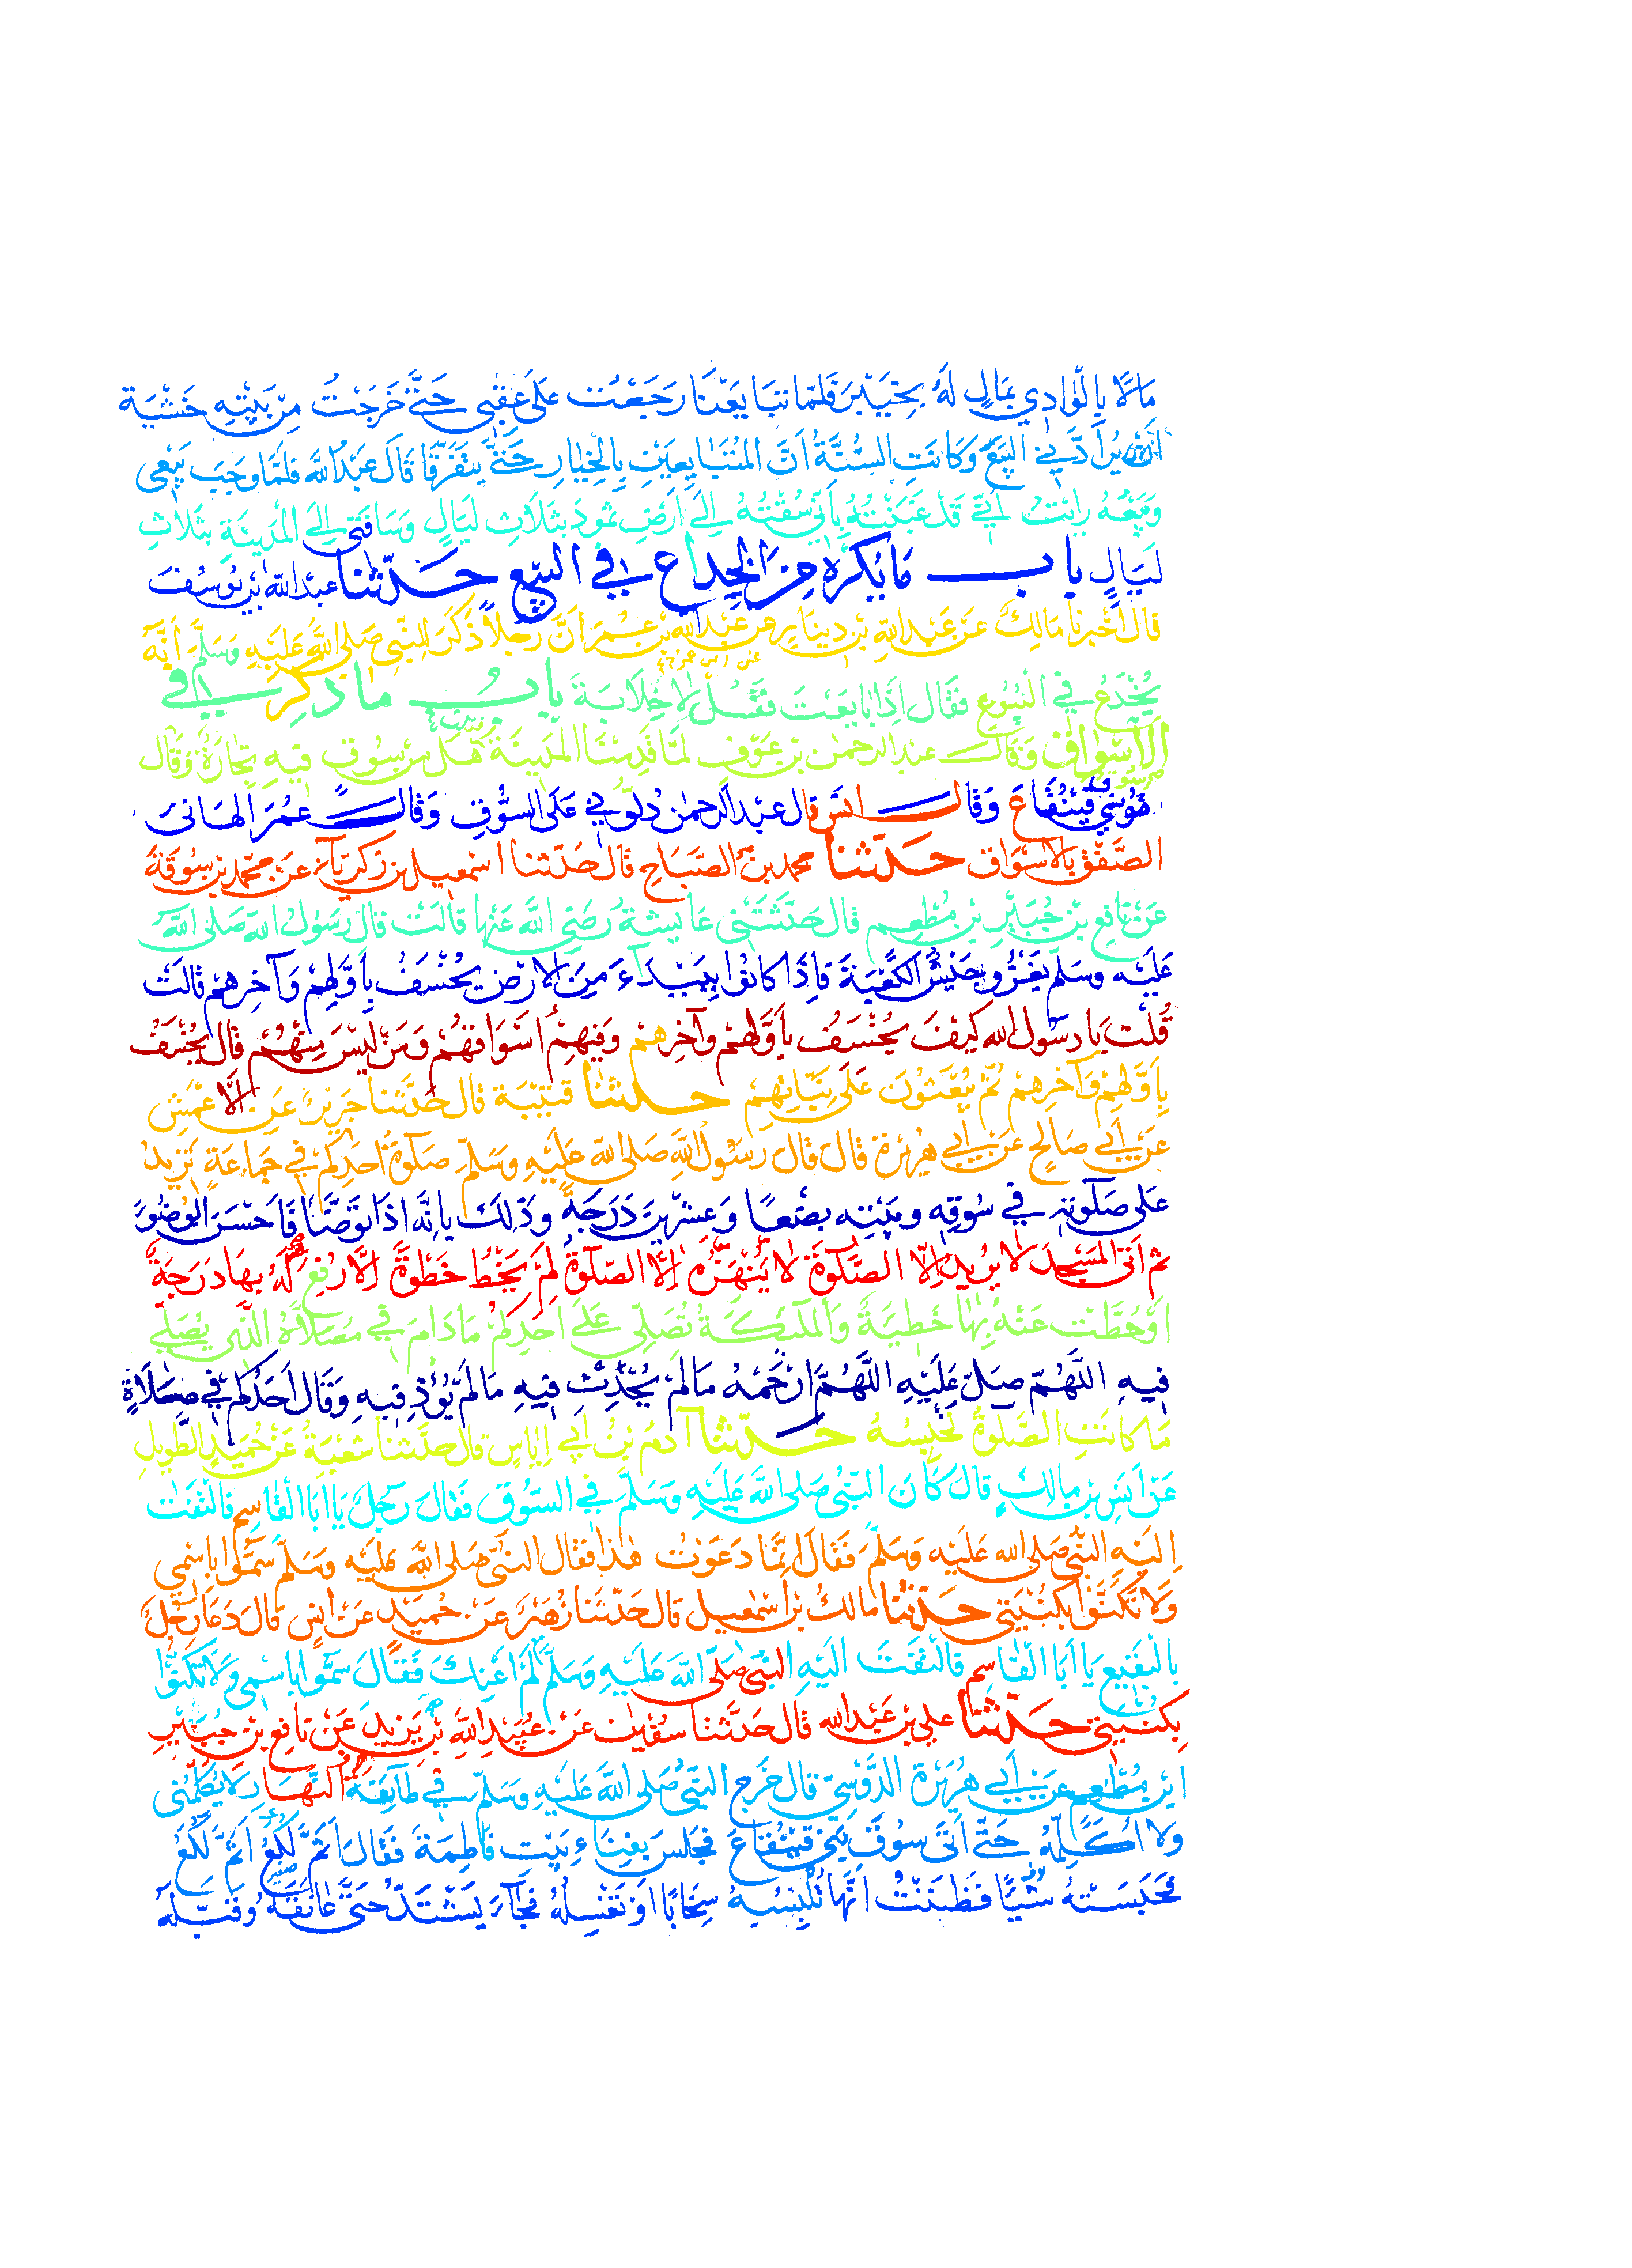 مَالًا بِالْوَادِي بِمَالٍ لَهُ بِخَيْبَرَ فَلَمَّا تَبَايَعْنَا رَجَعْتُ عَلَى عَقِبِي حَتَّى خَرَجْتُ مِنْ بَيْتِهِ خَشْيَةَ
اَنْ يُرَادَّنِي الْبَيْعَ وَكَانَتِ السُّنَّةُ اَنَّ الْمُتَبَايِعَيْنِ بِالْخِيَارِ حَتَّى يَتَفَرَّقَا قَالَ عَبْدُ اللَّهِ فَلَمَّا وَجَبَ بَيْعِي
وَبَيْعُهُ رَاَيْتُ اَنِّي قَدْ غَبَنْتُهُ بِاَنِّي سُقْتُهُ اِلَى اَرْضِ ثَمُودَ بِثَلَاثِ لَيَالٍ وَسَاقَنِي اِلَى الْمَدِينَةِ بِثَلَاثِ
لَيَالٍ باب مَا يُكْرَهُ مِنَ الْخِدَاعِ فِي الْبَيْعِ حَدَّثَنَا عَبْدُ اللَّهِ بْنُ يُوسُفَ
قَالَ اَخْبَرَنَا مَالِكٌ عَنْ عَبْدِ اللَّهِ بْنِ دِينَارٍ عَنْ عَبْدِ اللَّهِ بْنِ عُمَرَ اَنَّ رَجُلًا ذَكَرَ لِلنَّبِيِّ صَلَّى اللَّهُ عَلَيْهِ وَسَلَّمَ اَنَّهُ
يُخْدَعُ فِي الْبُيُوعِ فَقَالَ اِذَا بَايَعْتَ فَقُلْ لَا خِلَابَةَ بَابُ مَا ذُكِرَ فِي
الْاَسْوَاقِ وَقَالَ عَبْدُ الرَّحْمٰنِ بْنُ عَوْفٍ لَمَّا قَدِمْنَا الْمَدِينَةَ هَلْ مِنْ سُوقٍ فِيهِ تِجَارَةٌ وَقَالَ
قَيْنُقَاعَ وَقَالَ اَنَسٌ قَالَ عَبْدُ الرَّحْمٰنِ دُلُّونِي عَلَى السُّوقِ وَقَالَ عُمَرُ اَلْهَانِى
الصَّفْقُ بِالْاَسْوَاقِ حَدَّثَنَا مُحَمَّدُ بْنُ الصَّبَّاحِ قَالَ حَدَّثَنَا اِسْمٰعِيلُ بْنُ زَكَرِيَّاءَ عَنْ مُحَمَّدِ بْنِ سُوقَةَ
عَنْ نَافِعِ بْنِ جُبَيْرِ بْنِ مُطْعِمٍ قَالَ حَدَّثَتْنِي عَايِشَةُ رَضِيَ اللَّهُ عَنْهَا قَالَتْ قَالَ رَسُولُ اللَّهِ صَلَّى اللَّهُ
عَلَيْهِ وَسَلَّمَ يَغْزُو جَيْشٌ الْكَعْبَةَ فَاِذَا كَانُوا بِبَيْدَاءَ مِنَ الْاَرْضِ يُخْسَفُ بِاَوَّلِهِمْ وَآخِرِهِمْ قَالَتْ
قُلْتُ يَا رَسُولَ اللَّهِ كَيْفَ يُخْسَفُ بِاَوَّلِهِمْ وَآخِرِهِمْ وَفِيهِمْ اَسْوَاقُهُمْ وَمَنْ لَيْسَ مِنْهُمْ قَالَ يُخْسَفُ
بِاَوَّلِهِمْ وَآخِرِهِمْ ثُمَّ يُبْعَثُونَ عَلَى نِيَّاتِهِمْ حَدَّثَنَا قُتَيْبَةُ قَالَ حَدَّثَنَا جَرِيرٌ عَنِ الْاَعْمَشِ
عَنْ اَبِي صَالِحٍ عَنْ اَبِي هُرَيْرَةَ قَالَ قَالَ رَسُولُ اللَّهِ صَلَّى اللَّهُ عَلَيْهِ وَسَلَّمَ صَلٰوةُ اَحَدِكُمْ فِي جَمَاعَةٍ تَزِيدُ
عَلَى صَلٰوتِهِ فِي سُوقِهِ وَبَيْتِهِ بِضْعًا وَعِشْرِينَ دَرَجَةً وَذٰلِكَ بِاَنَّهُ اِذَا تَوَضَّاَ فَاَحْسَنَ الْوُضُوءَ
ثُمَّ اَتَى الْمَسْجِدَ لَا يُرِيدُ اِلَّا الصَّلٰوةَ لَا يَنْهَزُهُ اِلَّا الصَّلٰوةُ لَمْ يَخْطُ خَطْوَةً اِلَّا رُفِعَ لَهُ بِهَا دَرَجَةً
اَوْ حُطَّتْ عَنْهُ بِهَا خَطِيئَةٌ وَالْمَلٰئِكَةُ تُصَلِّي عَلَى اَحَدِكُمْ مَا دَامَ فِي مُصَلَّاهُ الَّذِي يُصَلِّي
فِيهِ اللَّهُمَّ صَلِّ عَلَيْهِ اللَّهُمَّ ارْحَمْهُ مَا لَمْ يُحْدِثْ فِيهِ مَا لَمْ يُؤْذِ فِيهِ وَقَالَ اَحَدُكُمْ فِي صَلَاةٍ
مَا كَانَتِ الصَّلٰوةُ تَحْبِسُهُ حَدَّثَنَا آدَمُ بْنُ اَبِي اِيَاسٍ قَالَ حَدَّثَنَا شُعْبَةُ عَنْ حُمَيْدٍ الطَّوِيلِ
عَنْ اَنَسِ بْنِ مَالِكٍ قَالَ كَانَ النَّبِيُّ صَلَّى اللَّهُ عَلَيْهِ وَسَلَّمَ فِي السُّوقِ فَقَالَ رَجُلٌ يَا اَبَا الْقَاسِمِ فَالْتَفَتَ
اِلَيْهِ النَّبِيُّ صَلَّى اللَّهُ عَلَيْهِ وَسَلَّمَ فَقَالَ اِنَّمَا دَعَوْتُ هٰذَا فَقَالَ النَّبِيُّ صَلَّى اللَّهُ عَلَيْهِ وَسَلَّمَ سَمُّوا بِاسْمِي
وَلَا تَكَنَّوْا بِكُنْيَتِي حَدَّثَنَا مَالِكُ بْنُ اِسْمٰعِيلَ قَالَ حَدَّثَنَا زُهَيْرٌ عَنْ حُمَيْدٍ عَنْ اَنَسٍ قَالَ دَعَا رَجُلٌ
بِالْبَقِيعِ يَا اَبَا الْقَاسِمِ فَالْتَفَتَ اِلَيْهِ النَّبِيُّ صَلَّى اللَّهُ عَلَيْهِ وَسَلَّمَ لَمْ اَعْنِكَ فَقَالَ سَمُّوا بِاسْمِي وَلَا تَكَنَّوْا
بِكُنْيَتِي حَدَّثَنَا عَلِيُّ بْنُ عَبْدِ اللَّهِ قَالَ حَدَّثَنَا سُفْيٰنُ عَنْ عُبَيْدِ اللَّهِ بْنِ يَزِيدَ عَنْ نَافِعِ بْنِ جُبَيْرِ
ابْنِ مُطْعِمٍ عَنْ اَبِي هُرَيْرَةَ الدَّوْسِيِّ قَالَ خَرَجَ النَّبِيُّ صَلَّى اللَّهُ عَلَيْهِ وَسَلَّمَ فِي طَائِفَةِ النَّهَارِ لَا يُكَلِّمُنِي
وَلَا اُكَلِّمُهُ حَتَّى اَتَى سُوقَ بَنِي قَيْنُقَاعَ فَجَلَسَ بِفِنَاءِ بَيْتِ فَاطِمَةَ فَقَالَ اَثَمَّ لُكَعُ اَثَمَّ لُكَعُ
فَحَبَسَتْهُ شَيْئًا فَظَنَنْتُ اَنَّهَا تُلْبِسُهُ سِخَابًا اَوْ تُغَسِّلُهُ فَجَاءَ يَشْتَدُّ حَتَّى عَانَقَهُ وَقَبَّلَهُ